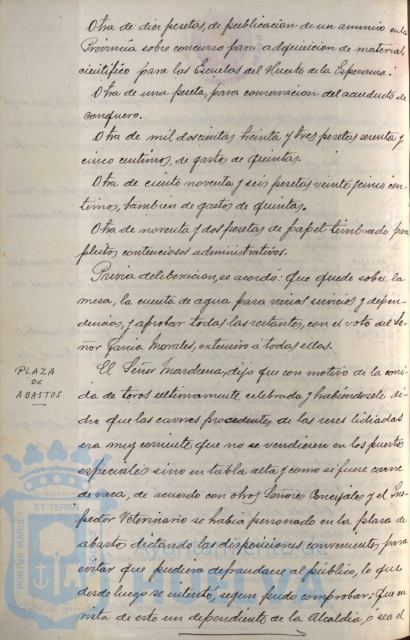 Otra de diez pesetas, de publicacion de un anuncio en la
Provincia sobre concurso para adquisicion de material
cientifico para las Escuelas del Huerto de la Esperanza.
Otra de una peseta, para conservacion del acueducto de
conquero.
Otra de mil doscientas treinta y tres pesetas sesenta y
cinco centimos, de gastos de quintas.
Otra de ciento noventa y seis pesetas veinte y cinco cen-
timos, tambien de gastos de quintas.
Otra de noventa y dos pesetas de papel timbrado para
pleitos contenciosos administrativos.
Previa deliberacion, se acordó: que quede sobre la
mesa, la cuenta de agua para varios servicios y depen-
dencias, y aprobar todas las restantes, con el voto del Se-
ñor Garcia Morales, extensivo á todas ellas.
PLAZA
DE
ABASTOS
El Señor Marchena, dijo que con motivo de la corri-
da de toros ultimamente celebrada y habiendosele di-
cho que las carnes procedentes de las reses lidiadas
era muy corriente que no se vendiesen en los puestos
especiales sino en tabla alta y como si fuese carne
de vaca, de acuerdo con otros Señores Concejales y el Ins-
pector Veterinario se habia personado en la plaza de
abastos dictando las disposiciones convenientes para
evitar que pudiera defraudarse al público, lo que
desde luego se intentó, segun pudo comprobar: Que en
vista de esto un dependiente de la Alcaldia, o sea el
PORTUS MARIS ET TERRA